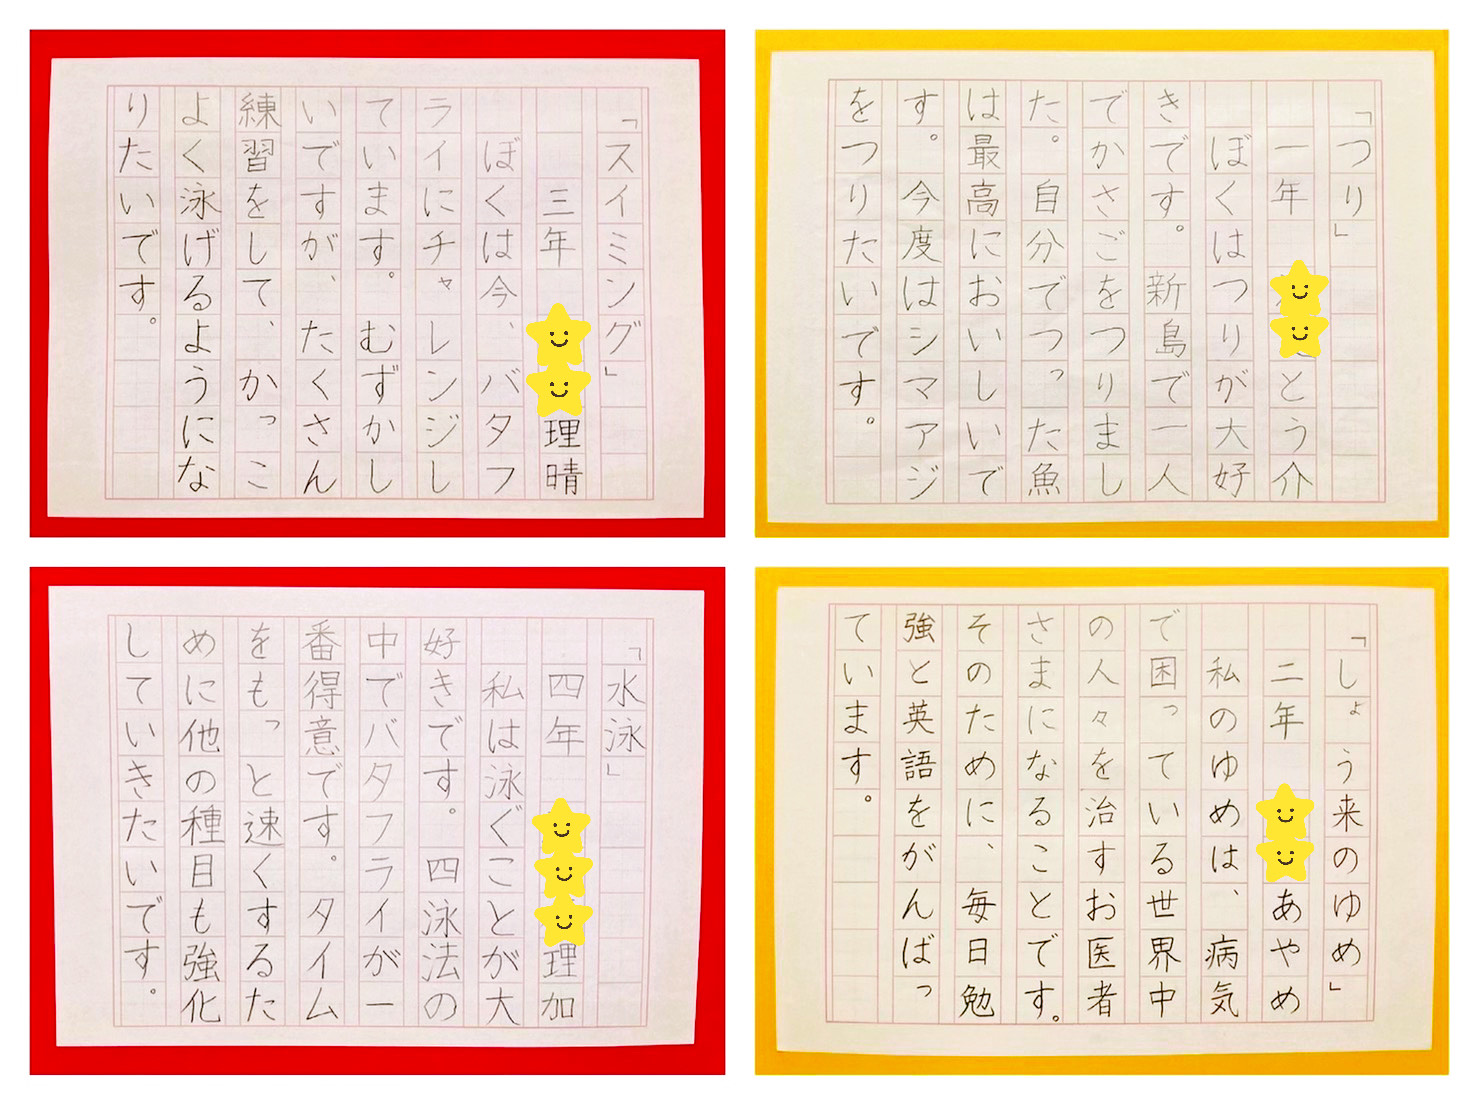 「スイミング」
三年 理晴
ぼくは今、バタフ
ライにチャレンジし
ています。むずかし
いですが、たくさん
練習をして、かっこ
よく泳げるようにな
りたいです。
「つり」
一年 とう介
ぼくはつりが大好
きです。新島で一人
でかさごをつりまし
た。自分でつった魚
は最高においしいで
す。今度はシマアジ
をつりたいです。
「水泳」
四年 理加
私は泳ぐことが大
好きです。四泳法の
中でバタフライが一
番得意です。タイム
をもっと速くするた
めに他の種目も強化
していきたいです。
「しょう来のゆめ」
二年 あやめ
私のゆめは、病気
で困っている世界中
の人々を治すお医者
さまになることです。
そのために、毎日勉
強と英語をがんばっ
ています。